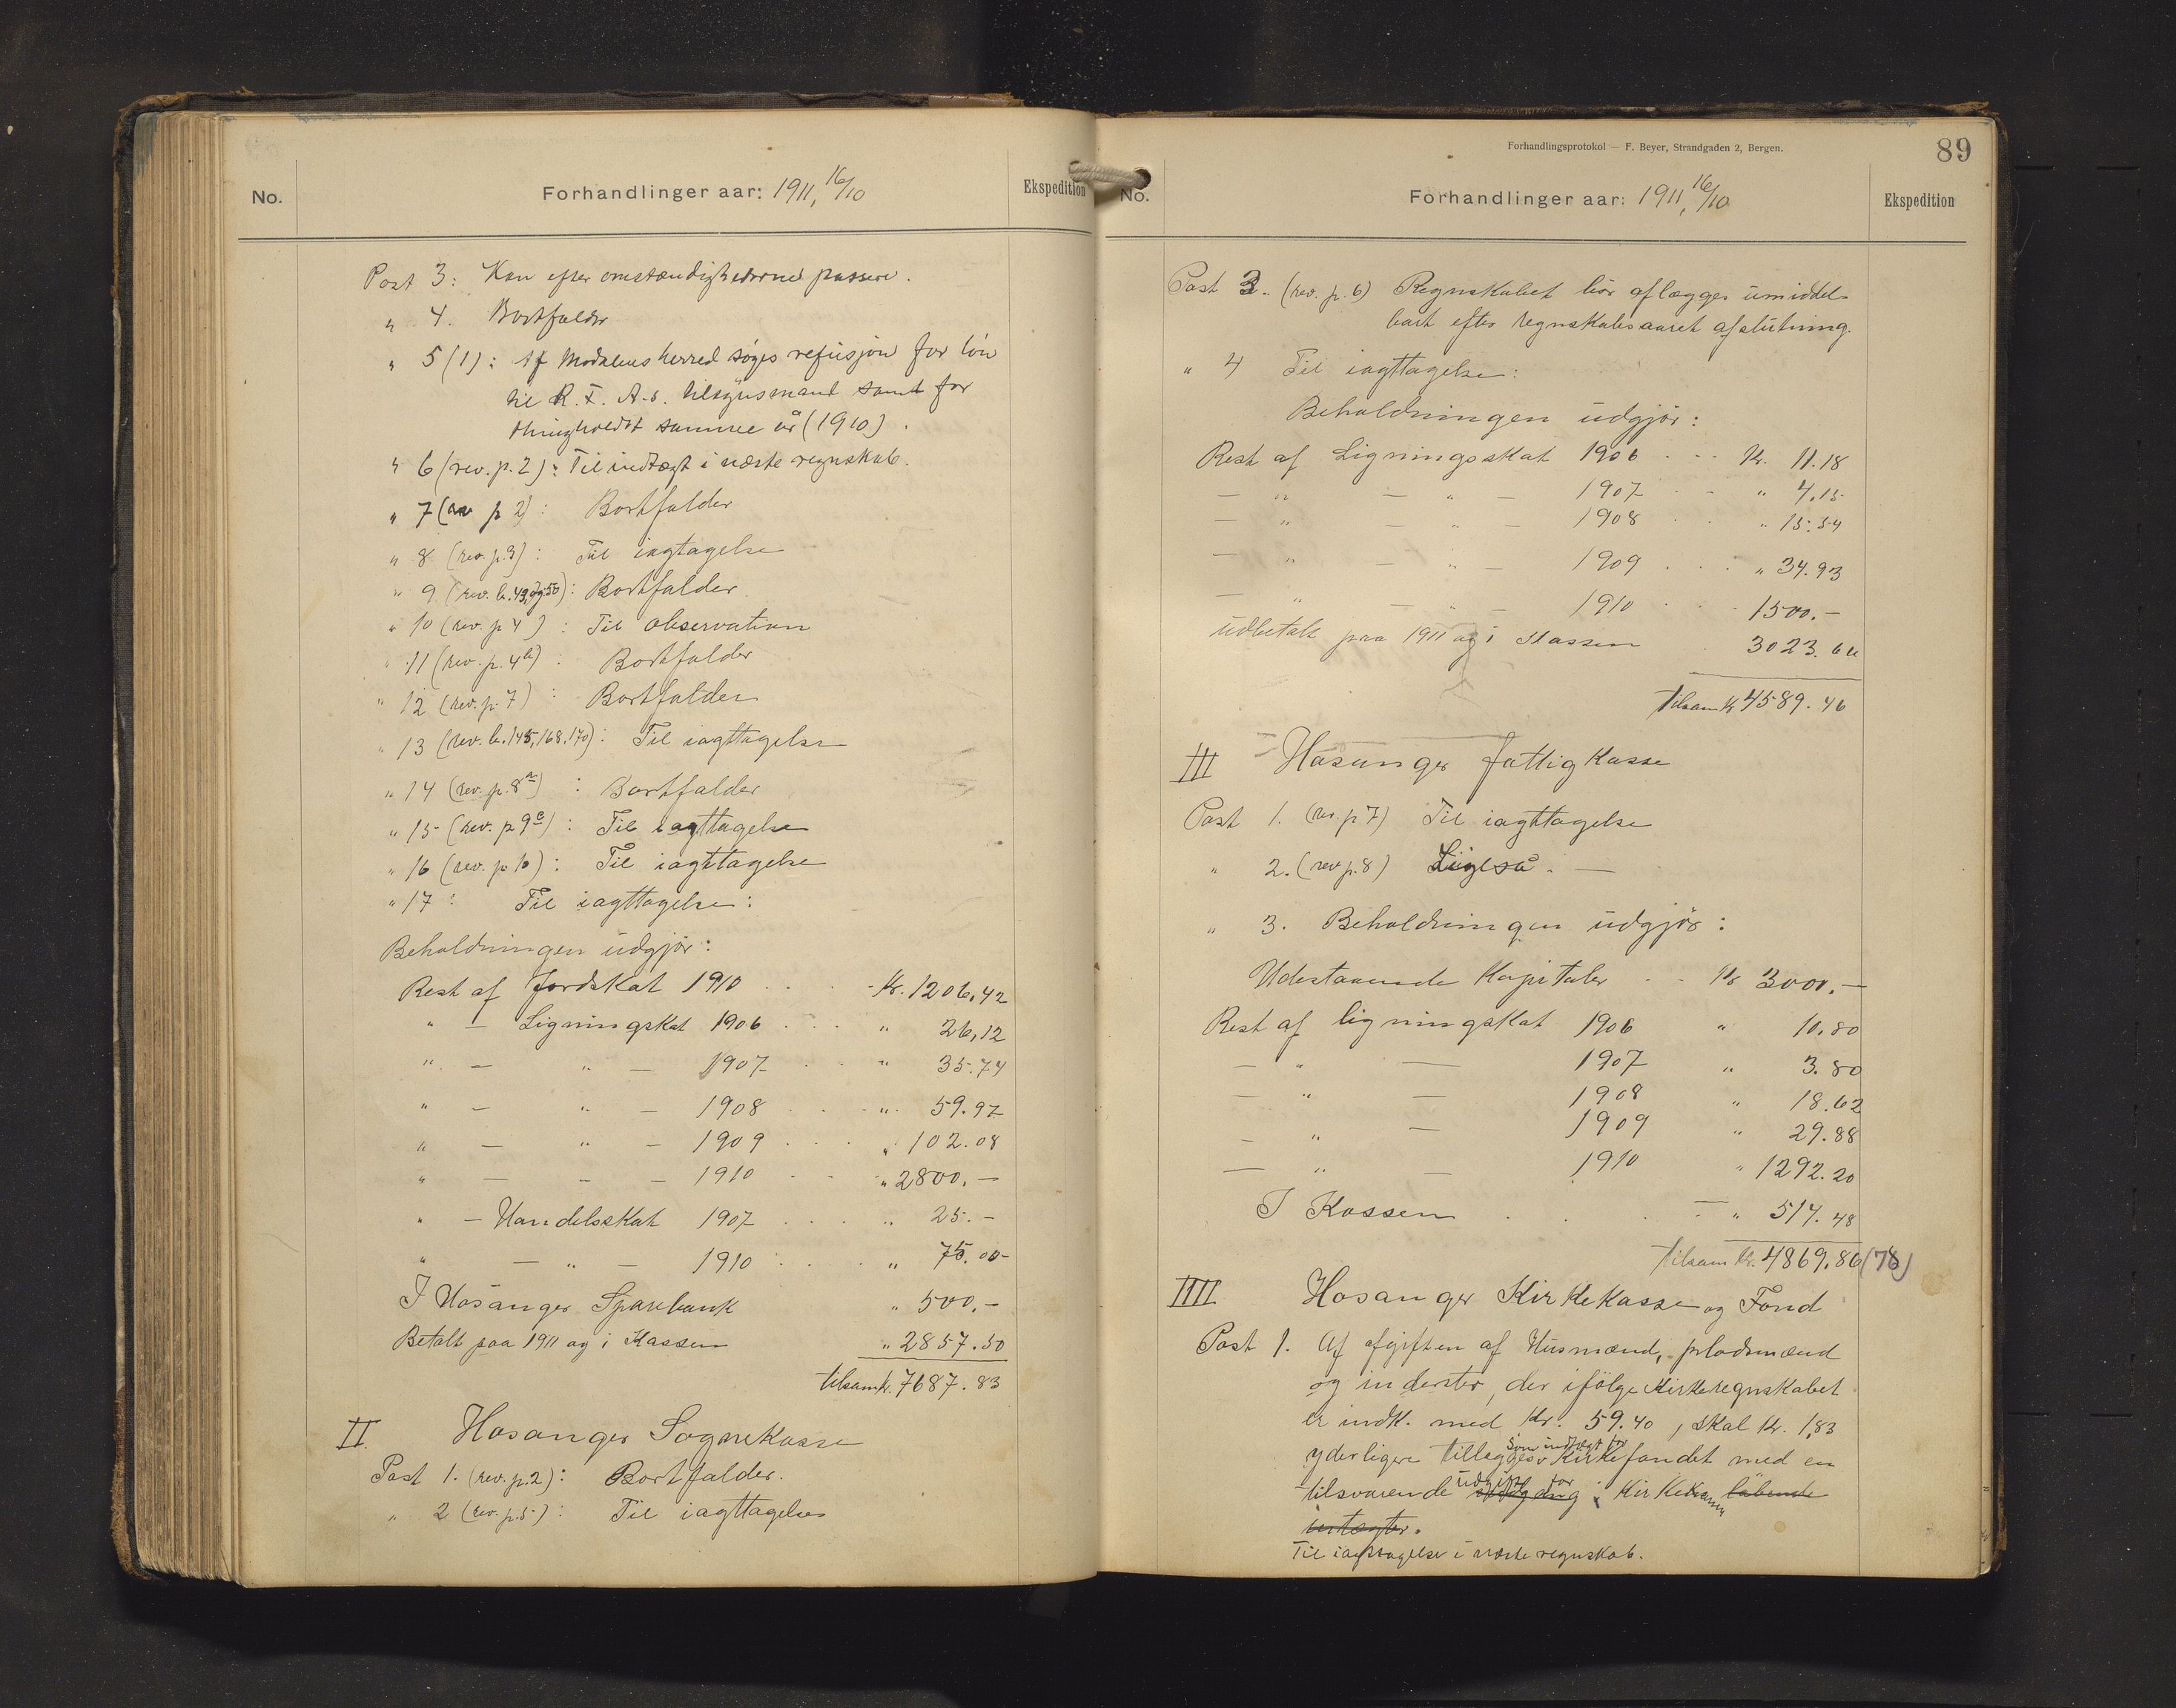 No.
Forhandlinger aar: 1911, 16/10
Ekspedition
Post 3: Kan efter omstændighederne passere.
" 4. Bortfalder
" 5 (1): Af Modalens herred søges refusjon for løn
til R. F. A-s. tilsynsmand samt for
thingholdet samme år (1910).
" 6 (rev. p. 2): Til indtægt i næste regnskab.
" 7 (rev p 2): Bortfalder
" 8 (rev. p. 3): Til iagtagelse
" 9 (rev. b. 49, og 50): Bortfalder.
" 10 (rev. p 4): Til observation
" 11 (rev. p. 4b): Bortfalder
" 12 (rev. p. 7): Bortfalder
" 13 (rev. b. 145, 168, 170): Til iagttagelse
" 14 (rev. p. 8a): Bortfalder
" 15 (rev. p 9c): Til iagttagelse
" 16 (rev. p 10): Til iagttagelse
" 17: Til iagttagelse:
Beholdningen udgjør:
Rest af Jordskat 1910 Kr. 1206,42
" — Ligningskat 1906 " 26,12
" — " — 1907 " 35.74
" — " — 1908 " 59.97
" — " — 1909 " 102.08
" — " — 1910 " 2800.—
" — Handelsskat 1907 " 25.—
" — " — 1910 " 75.00
I Hosanger Sparebank " 500.—
Betalt paa 1911 og i Kassen " 2857.50
tilsam kr. 7687.83
II. Hosanger Sognekasse
Post 1. (rev. p. 2): Bortfalder.
" 2 (rev. p. 5): Til iagttagelse
Forhandlingsprotokol — F. Beyer, Strandgaden 2, Bergen.
89
No.
Forhandlinger aar: 1911, 16/10
Ekspedition
Post 3. (rev. p. 6) Regnskabet bør aflægges umiddel-
bart efter regnskabsaaret afslutning.
" 4 Til iagttagelse:
Beholdningen udgjør:
Rest af Ligningsskat 1906 Kr. 11.18
— " — " — 1907 " 4.15
— " — " — 1908 " 15.54
— " — " — 1909 " 34.93
— " — " — 1910 1500.—
Udbetalt paa 1911 og i Kassen 3023.66
Tilsam Kr 4589.46
III Hosanger fattigkasse
Post 1. (rev. p 7) Til iagttagelse
" 2. (rev p. 8) Ligeså. —
" 3. Beholdningen udgjør:
Udestaaende Kapitaler Kr 3000.—
Rest af ligningskat 1906 " 10.80
— " — 1907 " 3.80
— " — 1908 " 18.62
— " — 1909 " 29.88
— " — 1910 " 1292.20
I Kassen " 514.48
Tilsam Kr. 4869.86 (78)
IIII Hosanger Kirkekasse og Fond
Post 1. Af afgiften af Husmænd, pladsmænd
og inderster, der ifølge Kirkeregnskabet
er indk. med Kr. 59.40, skal Kr. 1,83
yderligere tillegges som indtægt for Kirkefondet med en
tilsvarende udgift for Kirkekassen løbende
intægter.
Til iagttagelse i næste regnskab.